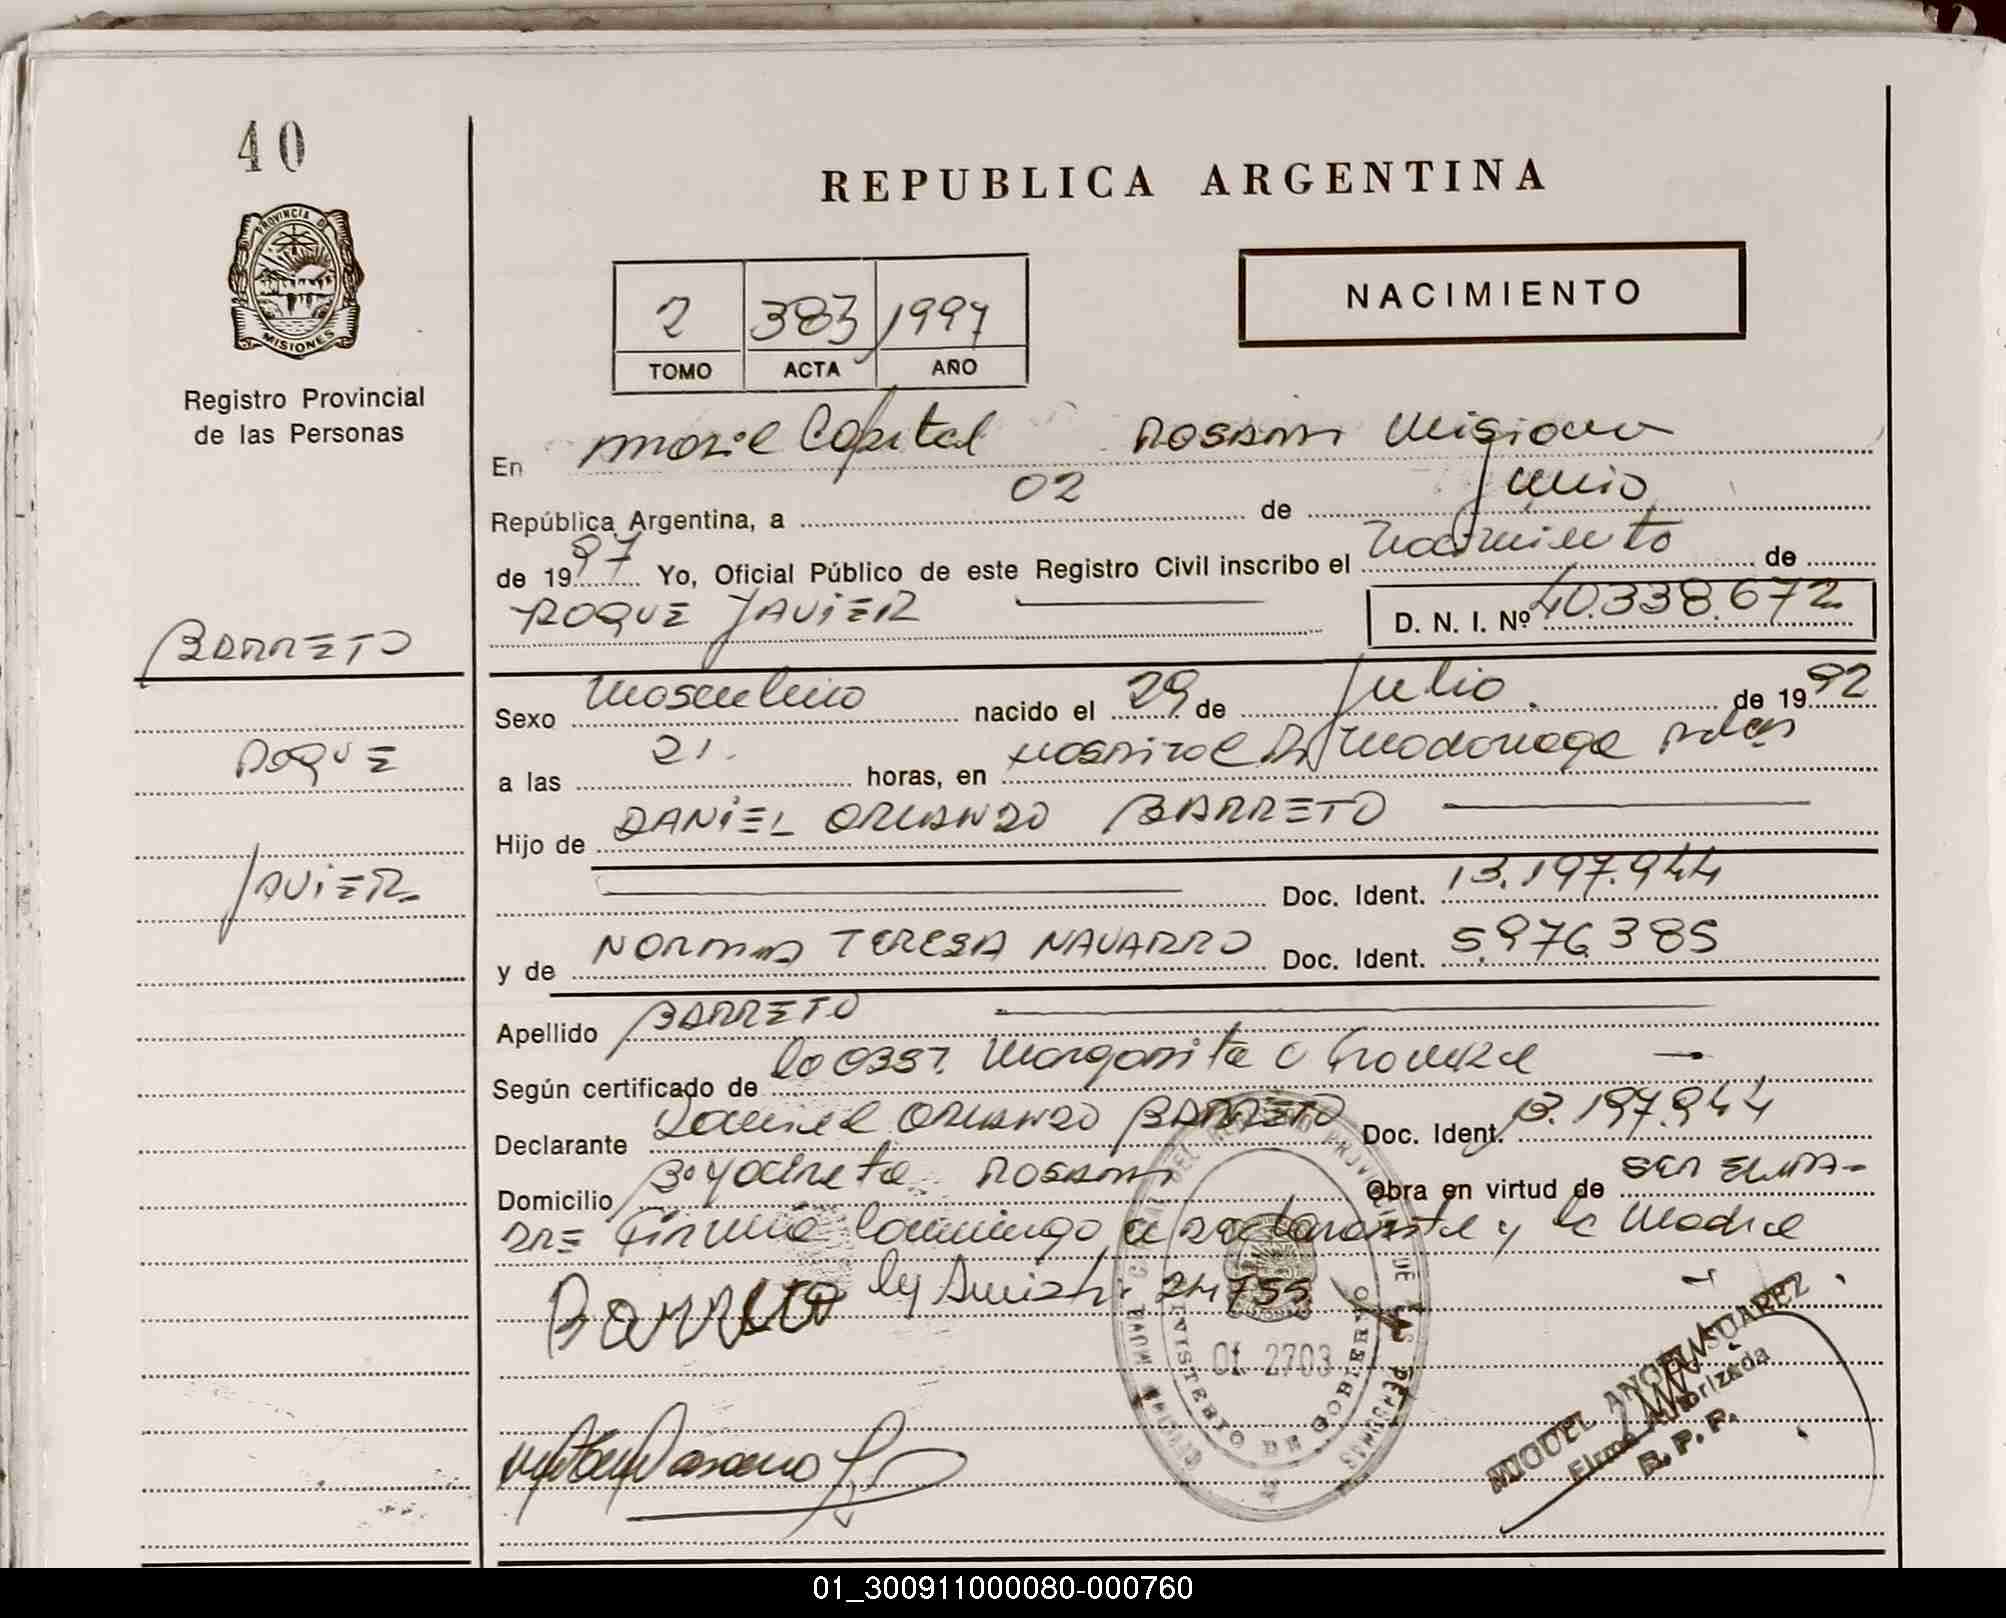 40
REPUBLICA ARGENTINA
PROVINCIA DE
MISIONES
Registro Provincial
de las Personas
2 383 1997
TOMO ACTA AÑO
NACIMIENTO
En Capital Misiones
República Argentina, a 02 de Junio
de 1997 Yo, Oficial Público de este Registro Civil inscribo el Nacimiento de
ROQUE JAVIER
D. N. I. Nº 40.338.672
BARRETO
ROQUE
JAVIER
Sexo Masculino nacido el 29 de Julio de 1992
a las 21 horas, en Hospital Dr Madariaga Pdas
Hijo de DANIEL ORLANDO BARRETO
Doc. Ident. 13.197.944
y de NORMA TERESA NAVARRO Doc. Ident. 5.976.385
Apellido BARRETO
Según certificado de la Obst. Margarita C
Declarante Daniel ORLANDO BARRETO Doc. Ident. 13.197.944
Domicilio Bº Yacireta Obra en virtud de SER EL PA-
DRE Firma Conmigo el declarante y la Madre
Barreto ley 24755
01 2703
MINISTERIO DE GOBIERNO
MIGUEL ANGEL SUAREZ
Firma Autorizada
R. P. P.
01_300911000080-000760